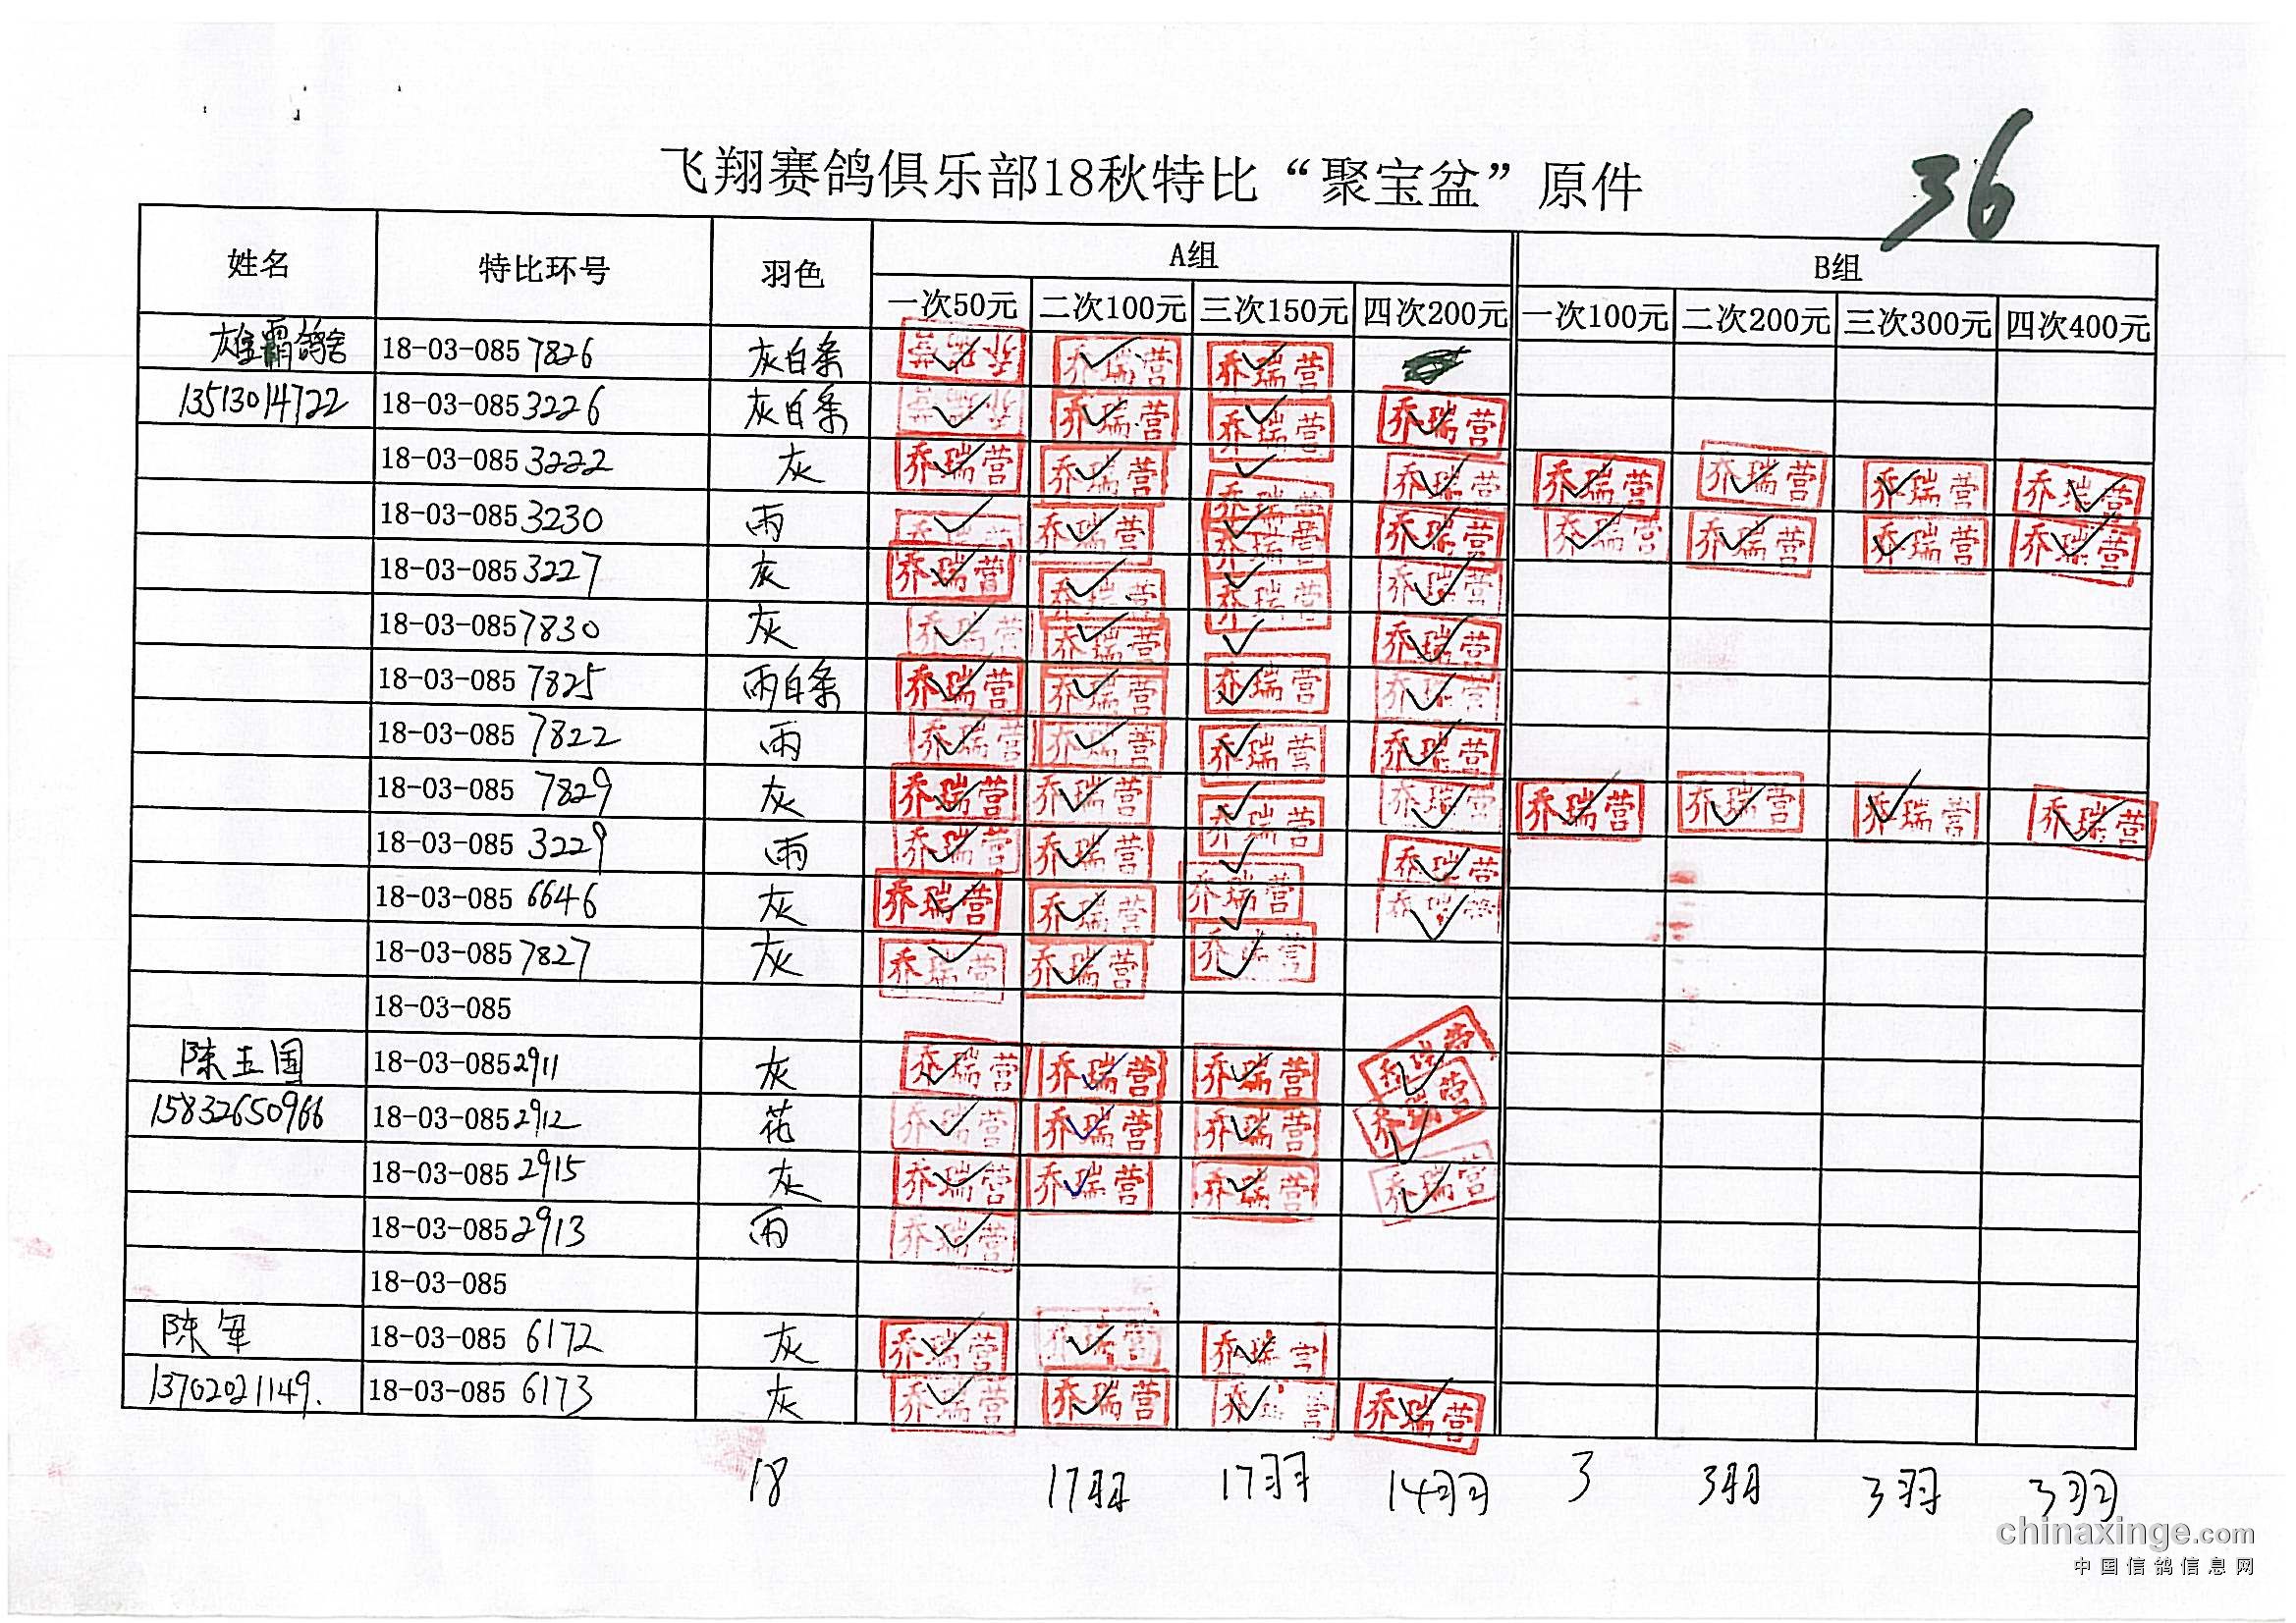 飞翔赛鸽俱乐部18秋特比“聚宝盆”原件
36
姓名 特比环号 羽色 A组 B组
一次50元 二次100元 三次150元 四次200元 一次100元 二次200元 三次300元 四次400元
雄霸鸽舍 18-03-085 7826 灰白条 乔瑞营 乔瑞营 乔瑞营
13513014722 18-03-085 3226 灰白条 乔瑞营 乔瑞营 乔瑞营 乔瑞营
18-03-085 3222 灰 乔瑞营 乔瑞营 乔瑞营 乔瑞营 乔瑞营 乔瑞营 乔瑞营 乔瑞营
18-03-085 3230 雨 乔瑞营 乔瑞营 乔瑞营 乔瑞营 乔瑞营 乔瑞营 乔瑞营 乔瑞营
18-03-085 3227 灰 乔瑞营 乔瑞营 乔瑞营 乔瑞营
18-03-085 7830 灰 乔瑞营 乔瑞营 乔瑞营
18-03-085 7825 雨白条 乔瑞营 乔瑞营 乔瑞营 乔瑞营
18-03-085 7822 雨 乔瑞营 乔瑞营 乔瑞营 乔瑞营
18-03-085 7829 灰 乔瑞营 乔瑞营 乔瑞营 乔瑞营 乔瑞营 乔瑞营 乔瑞营 乔瑞营
18-03-085 3229 雨 乔瑞营 乔瑞营 乔瑞营 乔瑞营
18-03-085 6646 灰 乔瑞营 乔瑞营 乔瑞营 乔瑞营
18-03-085 7827 灰 乔瑞营 乔瑞营 乔瑞营
18-03-085
陈玉国 18-03-085 2911 灰 乔瑞营 乔瑞营 乔瑞营 乔瑞营
15832650966 18-03-085 2912 花 乔瑞营 乔瑞营 乔瑞营 乔瑞营
18-03-085 2915 灰 乔瑞营 乔瑞营 乔瑞营 乔瑞营
18-03-085 2913 雨 乔瑞营
18-03-085
陈军 18-03-085 6172 灰 乔瑞营 乔瑞营 乔瑞营
13702021149. 18-03-085 6173 灰 乔瑞营 乔瑞营 乔瑞营 乔瑞营
18 17羽 17羽 14羽 3 3羽 3羽 3羽
chinaxinge.com
中国信鸽信息网